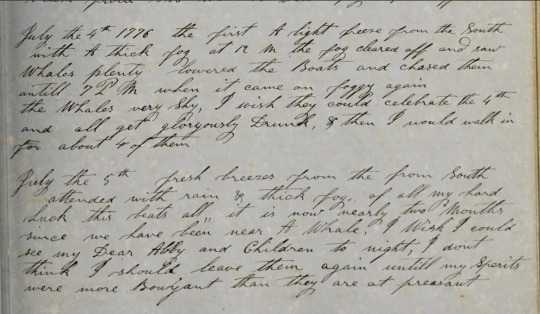 July the 4th 1776 the first A light breeze from the South
with A thick fog at 12 M the fog cleared off and saw
Whales plenty lowered the Boats and chased them
untill 7 P M when it came on foggy again
the Whales very Shy, I wish they could celebrate the 4th
and all get gloryously Drunk, & then I would walk in
for about 4 of them
July the 5th fresh breezes from the from South
attended with rain & thick fog, of all my hard
Luck this beats all,, it is now nearly two Months
since we have been near A Whale, I Wish I could
see my Dear Abby and Children to night, I dont
think I should leave them again untill my Sperits
were more Bouyant than they are at preasant